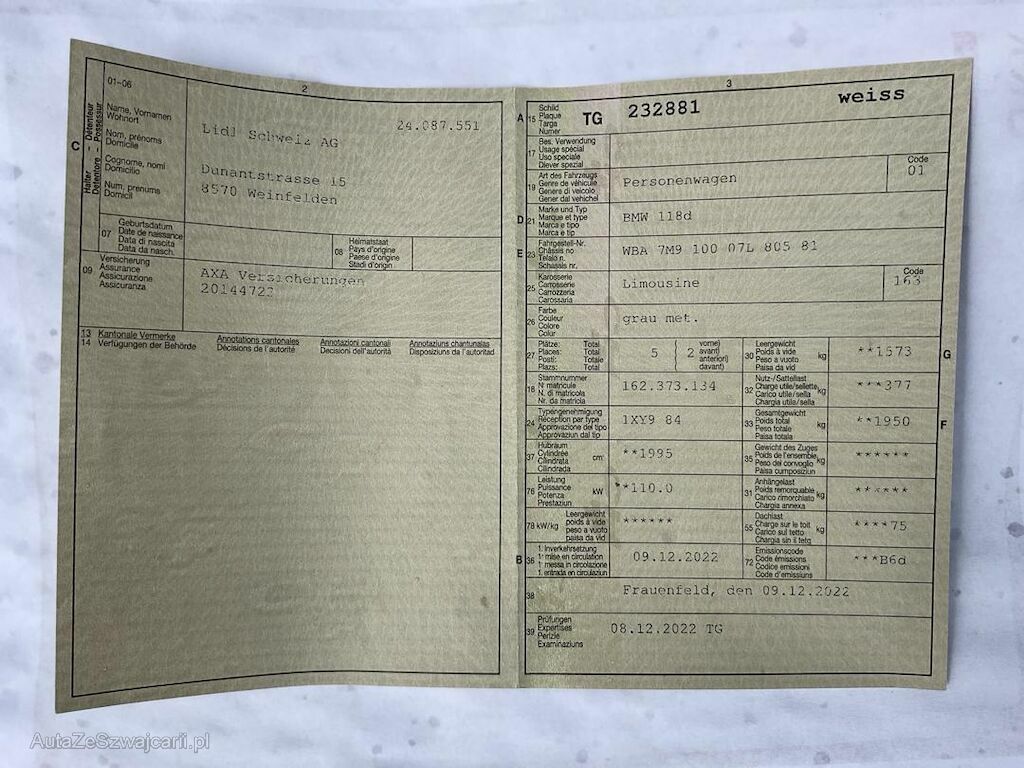 2
01-06
Halter - Détenteur
Detentore - Possessur
C
Name, Vornamen
Wohnort
Nom, prénoms
Domicile
Cognome, nomi
Domicilio
Num, prenums
Domicil
24.087.551
Lidl Schweiz AG
Dunantstrasse 15
8570 Weinfelden
07
Geburtsdatum
Date de naissance
Data di nascita
Data da nasch.
08
Heimatstaat
Pays d'origine
Paese d'origine
Stadi d'origin
09
Versicherung
Assurance
Assicurazione
Assicuranza
AXA Versicherungen
20144723
13 Kantonale Vermerke
14 Verfügungen der Behörde
Annotations cantonales
Décisions de l'autorité
Annotazioni cantonali
Decisioni dell'autorità
Annotaziuns chantunalas
Disposiziuns da l'autoritad
3
A
15
Schild
Plaque
Targa
Numer
TG 232881 weiss
17
Bes. Verwendung
Usage spécial
Uso speciale
Diever spezial
19
Art des Fahrzeugs
Genre de véhicule
Genere di veicolo
Gener dal vehichel
Personenwagen
Code
01
D
21
Marke und Typ
Marque et type
Marca e tipo
Marca e tip
BMW 118d
E
23
Fahrgestell-Nr.
Châssis no
Telaio n.
Schassis nr.
WBA 7M9 100 07L 805 81
25
Karosserie
Carrosserie
Carrozzeria
Carossaria
Limousine
Code
163
26
Farbe
Couleur
Colore
Colur
grau met.
27
Plätze: Total
Places: Total
Posti: Totale
Plazs: Total
5 ( 2 vorne)
avant)
anteriori)
davant)
30
Leergewicht
Poids à vide
Peso a vuoto
Paisa da vid
kg
**1573
G
18
Stammnummer
N° matricule
N. di matricola
Nr. da matricla
162.373.134
32
Nutz-/Sattellast
Charge utile/sellette
Carico utile/sella
Chargia utila/sella
kg
***377
24
Typengenehmigung
Réception par type
Approvazione del tipo
Approvaziun dal tip
1XY9 84
33
Gesamtgewicht
Poids total
Peso totale
Paisa totala
kg
**1950
F
37
Hubraum
Cylindrée
Cilindrata
Cilindrada
cm³
**1995
35
Gewicht des Zuges
Poids de l'ensemble
Peso del convoglio
Paisa cumposiziun
kg
******
76
Leistung
Puissance
Potenza
Prestaziun
kW
**110.0
31
Anhängelast
Poids remorquable
Carico rimorchiato
Chargia annexa
kg
******
78 kW/kg
Leergewicht
poids à vide
peso a vuoto
paisa da vid
******
55
Dachlast
Charge sur le toit
Carico sul tetto
Chargia sin il tetg
kg
****75
B
36
1. Inverkehrsetzung
1re mise en circulation
1a messa in circolazione
1. entrada en circulaziun
09.12.2022
72
Emissionscode
Code émissions
Codice emissioni
Code d'emissiuns
***B6d
38
Frauenfeld, den 09.12.2022
39
Prüfungen
Expertises
Perizie
Examinaziuns
08.12.2022 TG
AutaZeSzwajcarii.pl